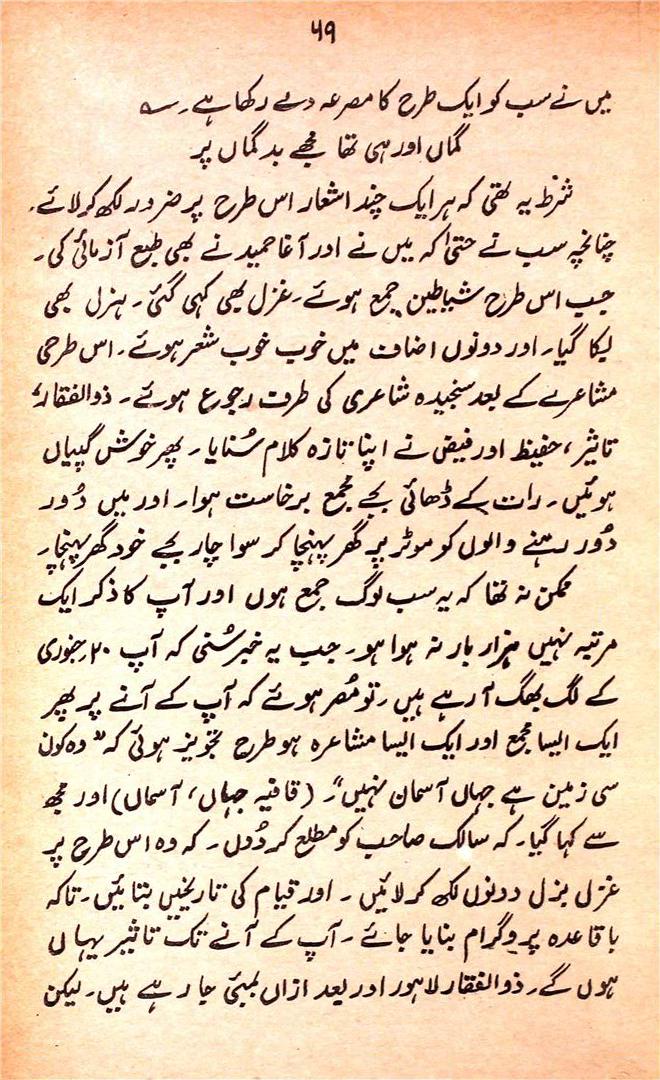 ۵۹
میں نے سب کو ایک طرح کا مصرعہ دے رکھا ہے۔ ؎
گماں اور ہی تھا مجھے بدگماں پر
شرط یہ تھی کہ ہر ایک چند اشعار اس طرح پر ضرور لکھ کر لائے۔
چنانچہ سب نے حتیٰ کہ میں نے اور آغا حمید نے بھی طبع آزمائی کی۔
جب اس طرح شیاطین جمع ہوئے۔ غزل بھی کہی گئی۔ ہزل بھی
لکا گیا۔ اور دونوں اضاف میں خوب خوب شعر ہوئے۔ اس طرحی
مشاعرے کے بعد سنجیدہ شاعری کی طرف رجوع ہوئے۔ ذوالفقار،
تاثیر، حفیظ اور فیض نے اپنا تازہ کلام سُنایا۔ پھر خوش گپیاں
ہوئیں۔ رات کے ڈھائی بجے مجمع برخاست ہوا۔ اور میں دُور
دُور رہنے والوں کو موٹر پر گھر پہنچا کر سوا چار بجے خود گھر پہنچا۔
ممکن نہ تھا کہ یہ سب لوگ جمع ہوں اور آپ کا ذکر ایک
مرتبہ نہیں ہزار بار نہ ہوا ہو۔ جب یہ خبر سُنی کہ آپ ۲۰؍ جنوری
کے لگ بھگ آ رہے ہیں۔ تو مُصر ہوئے کہ آپ کے آنے پر پھر
ایک ایسا مجمع اور ایک ایسا مشاعرہ ہو طرح تجویز ہوئی کہ "وہ کون
سی زمین ہے جہاں آسمان نہیں"۔ (قافیہ جہاں، آسماں) اور مجھ
سے کہا گیا۔ کہ سالک صاحب کو مطلع کر دُوں۔ کہ وہ اس طرح پر
غزل ہزل دونوں لکھ کر لائیں۔ اور قیام کی تاریخیں بتائیں۔ تاکہ
باقاعدہ پروگرام بنایا جائے۔ آپ کے آنے تک تاثیر یہاں
ہوں گے۔ ذوالفقار لاہور اور بعد ازاں بمبئی جا رہے ہیں۔ لیکن